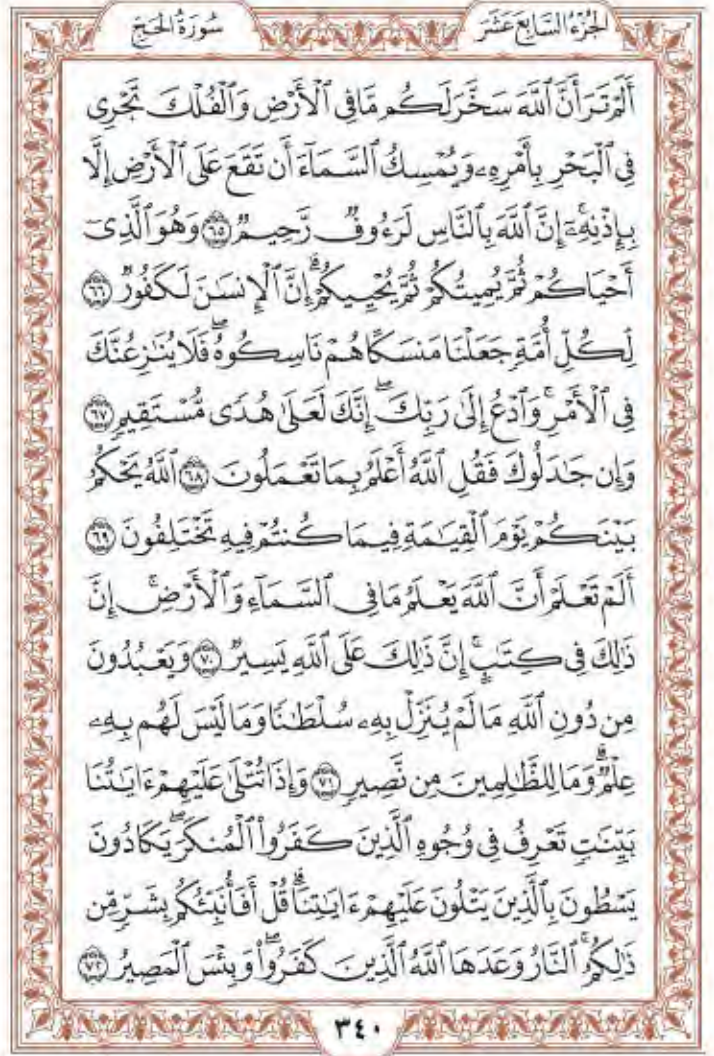 الجُزْءُ السَّابِعَ عَشَرَ
سُورَةُ الحَجّ
أَلَمْ تَرَ أَنَّ ٱللَّهَ سَخَّرَ لَكُم مَّا فِى ٱلْأَرْضِ وَٱلْفُلْكَ تَجْرِى
فِى ٱلْبَحْرِ بِأَمْرِهِۦ وَيُمْسِكُ ٱلسَّمَآءَ أَن تَقَعَ عَلَى ٱلْأَرْضِ إِلَّا
بِإِذْنِهِۦٓ ۗ إِنَّ ٱللَّهَ بِٱلنَّاسِ لَرَءُوفٌ رَّحِيمٌ ٦٥ وَهُوَ ٱلَّذِىٓ
أَحْيَاكُمْ ثُمَّ يُمِيتُكُمْ ثُمَّ يُحْيِيكُمْ ۗ إِنَّ ٱلْإِنسَٰنَ لَكَفُورٌ ٦٦
لِّكُلِّ أُمَّةٍ جَعَلْنَا مَنسَكًا هُمْ نَاسِكُوهُ ۖ فَلَا يُنَٰزِعُنَّكَ
فِى ٱلْأَمْرِ ۚ وَٱدْعُ إِلَىٰ رَبِّكَ ۖ إِنَّكَ لَعَلَىٰ هُدًى مُّسْتَقِيمٍ ٦٧
وَإِن جَٰدَلُوكَ فَقُلِ ٱللَّهُ أَعْلَمُ بِمَا تَعْمَلُونَ ٦٨ ٱللَّهُ يَحْكُمُ
بَيْنَكُمْ يَوْمَ ٱلْقِيَٰمَةِ فِيمَا كُنتُمْ فِيهِ تَخْتَلِفُونَ ٦٩
أَلَمْ تَعْلَمْ أَنَّ ٱللَّهَ يَعْلَمُ مَا فِى ٱلسَّمَآءِ وَٱلْأَرْضِ ۗ إِنَّ
ذَٰلِكَ فِى كِتَٰبٍ ۚ إِنَّ ذَٰلِكَ عَلَى ٱللَّهِ يَسِيرٌ ٧٠ وَيَعْبُدُونَ
مِن دُونِ ٱللَّهِ مَا لَمْ يُنَزِّلْ بِهِۦ سُلْطَٰنًا وَمَا لَيْسَ لَهُم بِهِۦ
عِلْمٌ ۗ وَمَا لِلظَّٰلِمِينَ مِن نَّصِيرٍ ٧١ وَإِذَا تُتْلَىٰ عَلَيْهِمْ ءَايَٰتُنَا
بَيِّنَٰتٍ تَعْرِفُ فِى وُجُوهِ ٱلَّذِينَ كَفَرُوا۟ ٱلْمُنكَرَ ۖ يَكَادُونَ
يَسْطُونَ بِٱلَّذِينَ يَتْلُونَ عَلَيْهِمْ ءَايَٰتِنَا ۗ قُلْ أَفَأُنَبِّئُكُم بِشَرٍّ مِّن
ذَٰلِكُمُ ۗ ٱلنَّارُ وَعَدَهَا ٱللَّهُ ٱلَّذِينَ كَفَرُوا۟ ۖ وَبِئْسَ ٱلْمَصِيرُ ٧٢
٣٤٠